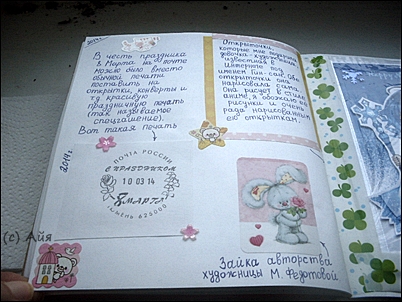 В честь праздника
8 Марта на почте
можно было вместо
обычной печати
поставить на
открытки, конверты и
т.д красивую
праздничную печать
(так называемое
спецгашение).
Вот такая печать
2014г.
ПОЧТА РОССИИ
С ПРАЗДНИКОМ
10 03 14
8 МАРТА
625000
Открыточки,
которые мне подарила
девочка-художница
известная в
Интернете под
именем
нарисовала сама.
Она рисует в стиле
аниме, я обожаю её
рисунки и очень
рада нарисованным
ею открыткам.
Зайка авторства
художницы М. Федотовой
(c) Айя